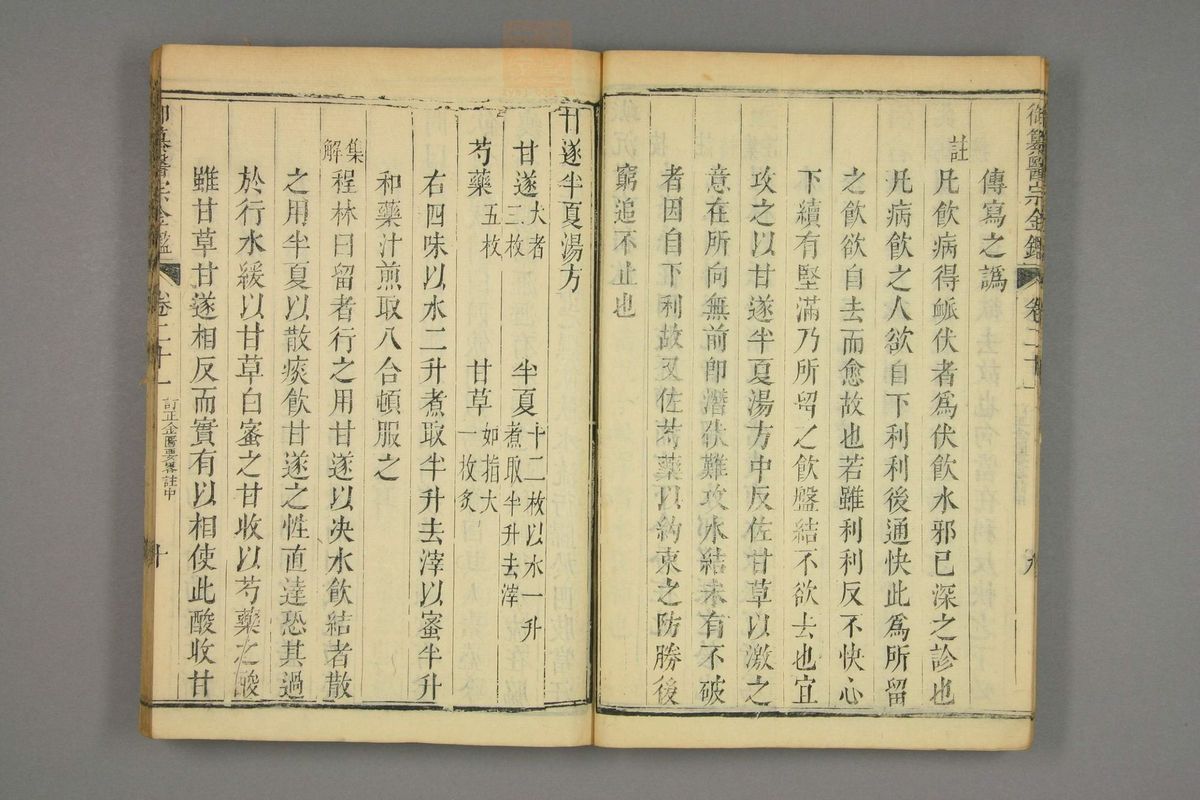 御纂醫宗金鑑 卷二十一 九
傳寫之譌
註
凡飲病得䘑伏者為伏飲水邪已深之診也
凡病飲之人欲自下利利後通快此為所留
之飲欲自去而愈故也若雖利利反不快心
下續有堅滿乃所留之飲盤結不欲去也宜
攻之以甘遂半夏湯方中反佐甘草以激之
意在所向無前即潛伏難攻水結未有不破
者因自下利故又佐芍藥以約束之防勝後
窮追不止也
甘遂半夏湯方
甘遂大者三枚 半夏十二枚以水一升煮取半升去滓
芍藥五枚 甘草如指大一枚炙
右四味以水二升煮取半升去滓以蜜半升
和藥汁煎取八合頓服之
集解
程林曰留者行之用甘遂以决水飲結者散
之用半夏以散痰飲甘遂之性直達恐其過
於行水緩以甘草白蜜之甘收以芍藥之酸
雖甘草甘遂相反而實有以相使此酸收甘
御纂醫宗金鑑 卷二十一 訂正金匱要畧註中 十